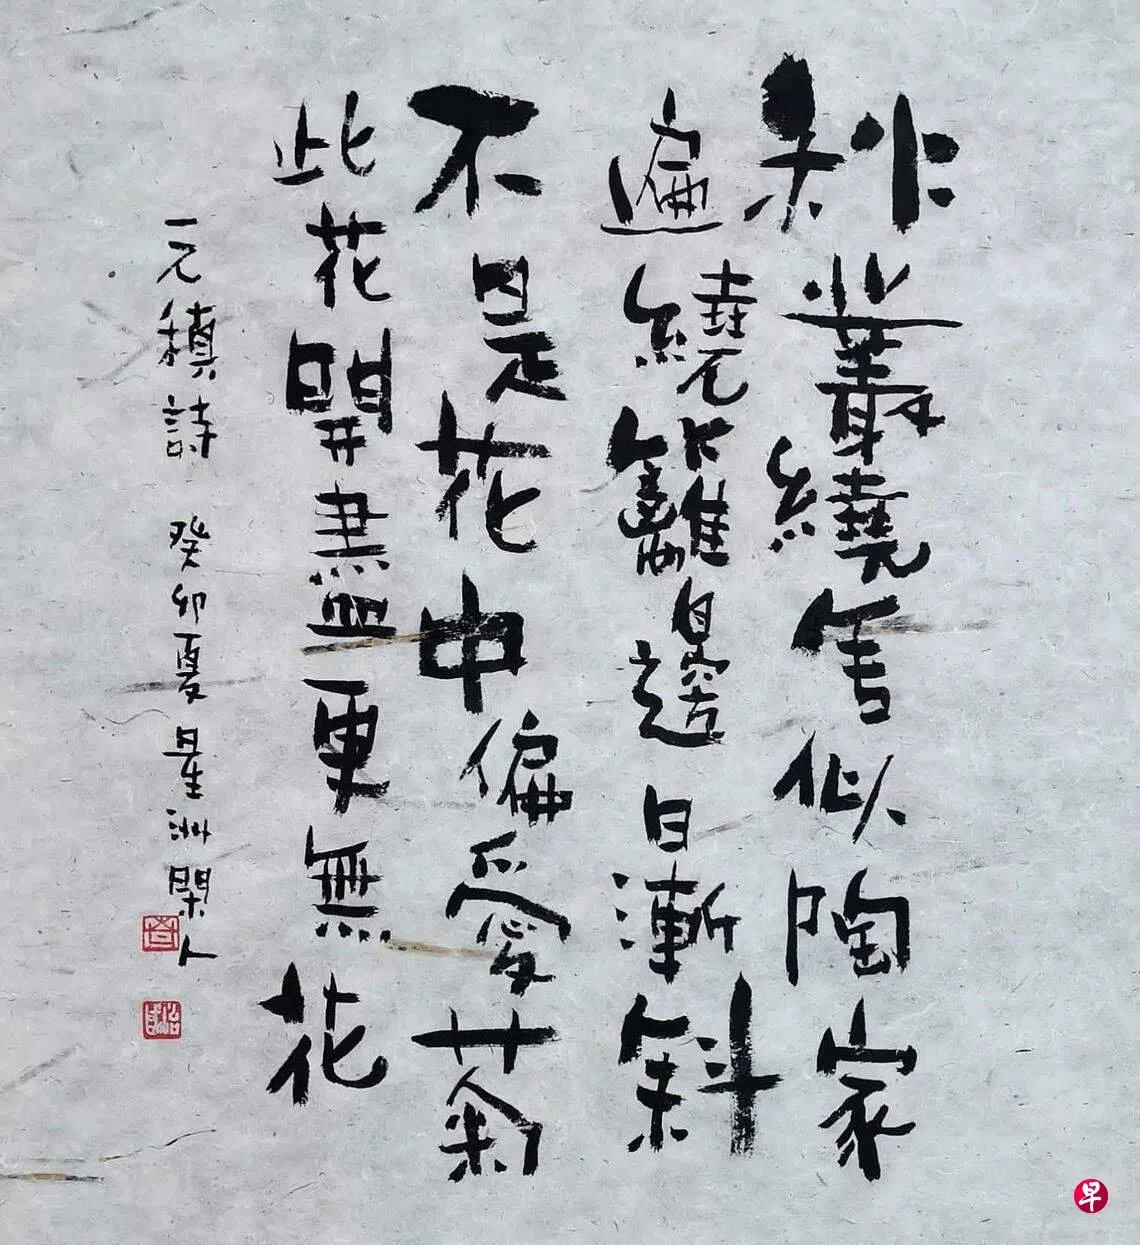 秋叢繞舍似陶家
遍繞籬邊日漸斜
不是花中偏愛菊
此花開盡更無花
元稹詩 癸卯夏 星洲閑人
早